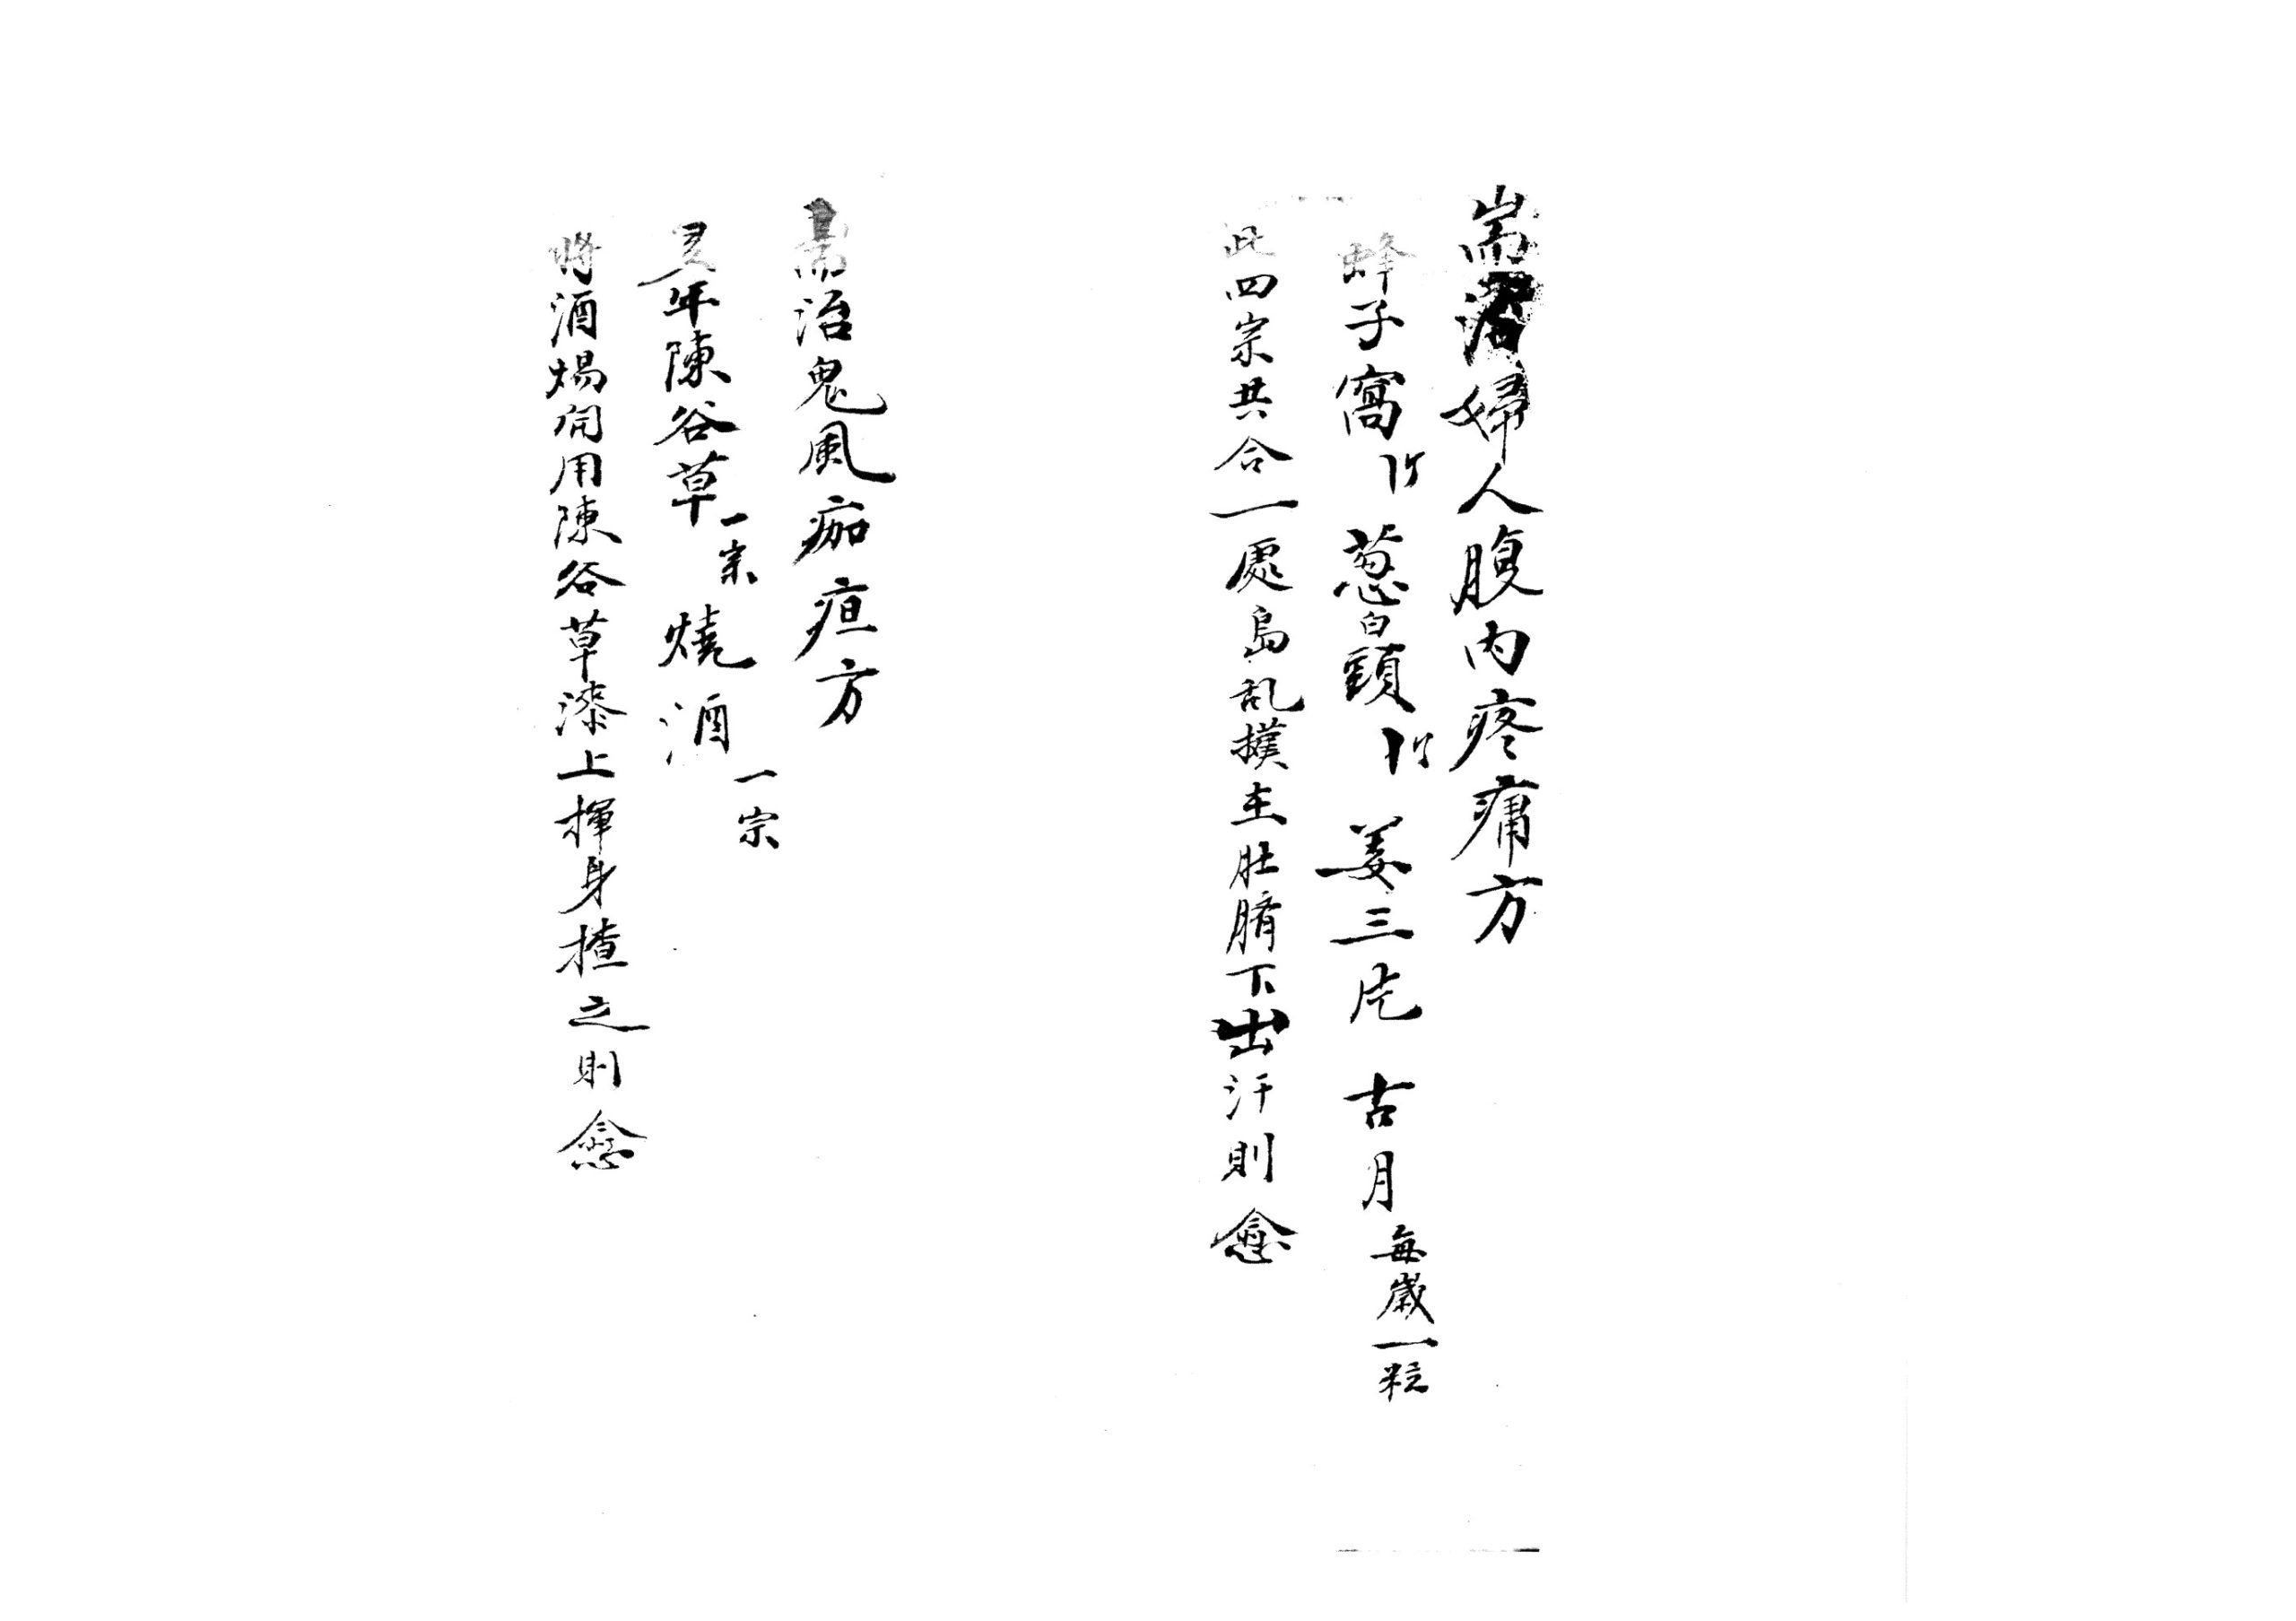 耑治婦人腹內疼痛方
蜂子窩 葱白頭 姜三片 古月每歲一粒
此四宗共合一處島乱撲在肚臍下出汗則愈
耑治鬼風疙疸方
年陳谷草一宗 燒酒一宗
將酒煬開用陳谷草漆上揮身揸之則愈